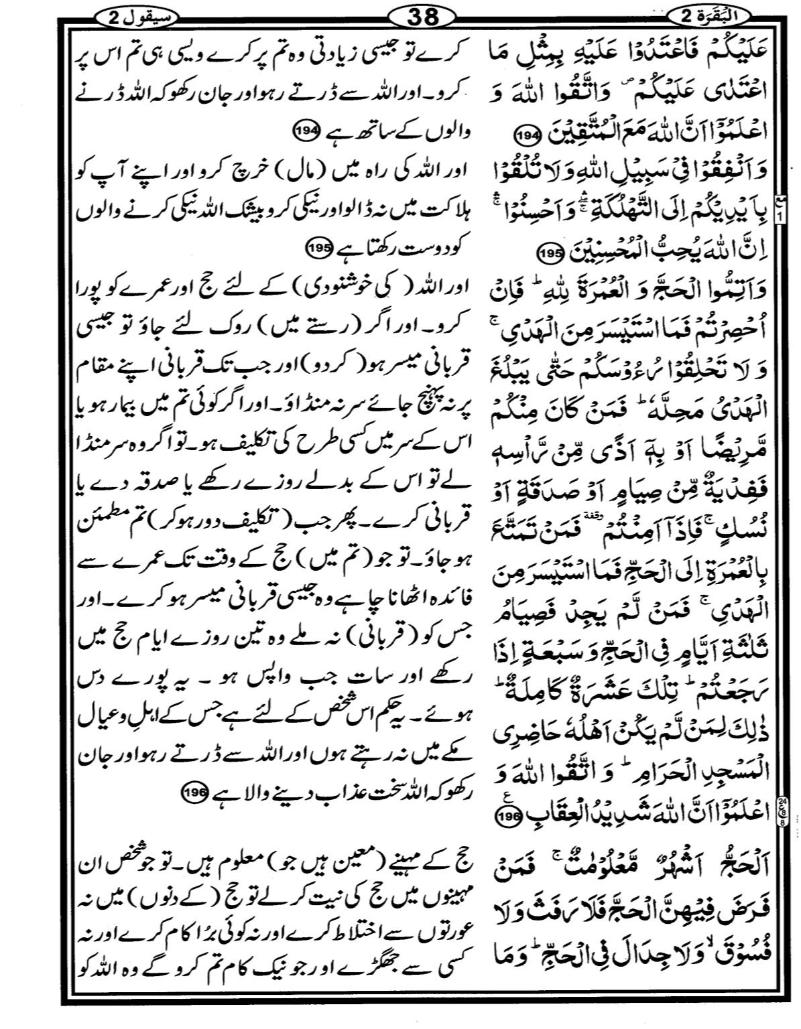 البقرة 2
38
سیقول 2
عَلَيْكُمْ فَاعْتَدُوْا عَلَيْهِ بِمِثْلِ مَا
اعْتَدٰى عَلَيْكُمْ ۪ وَاتَّقُوا اللّٰهَ وَ
اعْلَمُوْٓا اَنَّ اللّٰهَ مَعَ الْمُتَّقِيْنَ 194
وَاَنْفِقُوْا فِيْ سَبِيْلِ اللّٰهِ وَلَا تُلْقُوْا
بِاَيْدِيْكُمْ اِلَى التَّهْلُكَةِ ۛ وَاَحْسِنُوْا ۛ
اِنَّ اللّٰهَ يُحِبُّ الْمُحْسِنِيْنَ 195
وَاَتِمُّوا الْحَجَّ وَ الْعُمْرَةَ لِلّٰهِ ؕ فَاِنْ
اُحْصِرْتُمْ فَمَا اسْتَيْسَرَ مِنَ الْهَدْيِ ۚ
وَ لَا تَحْلِقُوْا رُءُوْسَكُمْ حَتّٰى يَبْلُغَ
الْهَدْيُ مَحِلَّهٗ ؕ فَمَنْ كَانَ مِنْكُمْ
مَّرِيْضًا اَوْ بِهٖٓ اَذًى مِّنْ رَّاْسِهٖ
فَفِدْيَةٌ مِّنْ صِيَامٍ اَوْ صَدَقَةٍ اَوْ
نُسُكٍ ۚ فَاِذَآ اَمِنْتُمْ وقفة فَمَنْ تَمَتَّعَ
بِالْعُمْرَةِ اِلَى الْحَجِّ فَمَا اسْتَيْسَرَ مِنَ
الْهَدْيِ ۚ فَمَنْ لَّمْ يَجِدْ فَصِيَامُ
ثَلٰثَةِ اَيَّامٍ فِي الْحَجِّ وَ سَبْعَةٍ اِذَا
رَجَعْتُمْ ؕ تِلْكَ عَشَرَةٌ كَامِلَةٌ ؕ
ذٰلِكَ لِمَنْ لَّمْ يَكُنْ اَهْلُهٗ حَاضِرِى
الْمَسْجِدِ الْحَرَامِ ؕ وَ اتَّقُوا اللّٰهَ وَ
اعْلَمُوْٓا اَنَّ اللّٰهَ شَدِيْدُ الْعِقَابِ 196 ع
اَلْحَجُّ اَشْهُرٌ مَّعْلُوْمٰتٌ ۚ فَمَنْ
فَرَضَ فِيْهِنَّ الْحَجَّ فَلَا رَفَثَ وَلَا
فُسُوْقَ ۙ وَلَا جِدَالَ فِي الْحَجِّ ؕ وَمَا
کرے تو جیسی زیادتی وہ تم پر کرے ویسی ہی تم اس پر
کرو۔ اور اللہ سے ڈرتے رہو اور جان رکھو کہ اللہ ڈرنے
والوں کے ساتھ ہے 194
اور اللہ کی راہ میں (مال) خرچ کرو اور اپنے آپ کو
ہلاکت میں نہ ڈالو اور نیکی کرو بیشک اللہ نیکی کرنے والوں
کو دوست رکھتا ہے 195
اور اللہ (کی خوشنودی) کے لئے حج اور عمرے کو پورا
کرو۔ اور اگر (رستے میں) روک لئے جاؤ تو جیسی
قربانی میسر ہو (کر دو) اور جب تک قربانی اپنے مقام
پر نہ پہنچ جائے سر نہ منڈاؤ۔ اور اگر کوئی تم میں بیمار ہو یا
اس کے سر میں کسی طرح کی تکلیف ہو۔ تو اگر وہ سر منڈا
لے تو اس کے بدلے روزے رکھے یا صدقہ دے یا
قربانی کرے۔ پھر جب (تکلیف دور ہو کر) تم مطمئن
ہو جاؤ۔ تو جو (تم میں) حج کے وقت تک عمرے سے
فائدہ اٹھانا چاہے وہ جیسی قربانی میسر ہو کرے۔ اور
جس کو (قربانی) نہ ملے وہ تین روزے ایام حج میں
رکھے اور سات جب واپس ہو ۔ یہ پورے دس
ہوئے۔ یہ حکم اس شخص کے لئے ہے جس کے اہل و عیال
مکے میں نہ رہتے ہوں اور اللہ سے ڈرتے رہو اور جان
رکھو کہ اللہ سخت عذاب دینے والا ہے 196
حج کے مہینے (معین ہیں جو) معلوم ہیں۔ تو جو شخص ان
مہینوں میں حج کی نیت کر لے تو حج (کے دنوں) میں نہ
عورتوں سے اختلاط کرے اور نہ کوئی برُا کام کرے اور نہ
کسی سے جھگڑے اور جو نیک کام تم کرو گے وہ اللہ کو